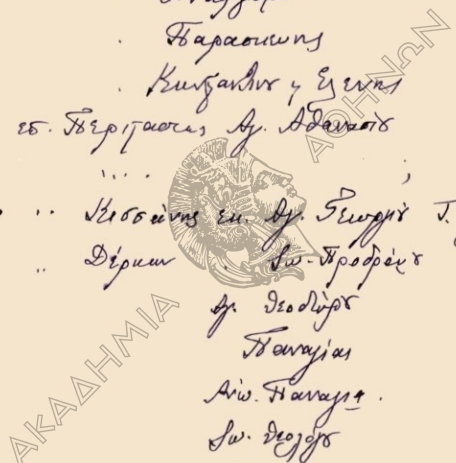 . Παρασκευης
. Κωνσταντινȣ κ Ελενης
επ. Περιστασεως Αγ. Αθανασιȣ
" .. .
.. Κισσάνης εκ. Αγ. Γεωργιȣ Γ.
.. Δέρκων . Ιω. Προδρόμȣ
Αγ. Θεοδώρȣ
Παναγίας
Ανω. Παναγια .
Ιω. Θεολόγȣ
ΑΚΑΔΗΜΙΑ
ΑΘΗΝΩΝ